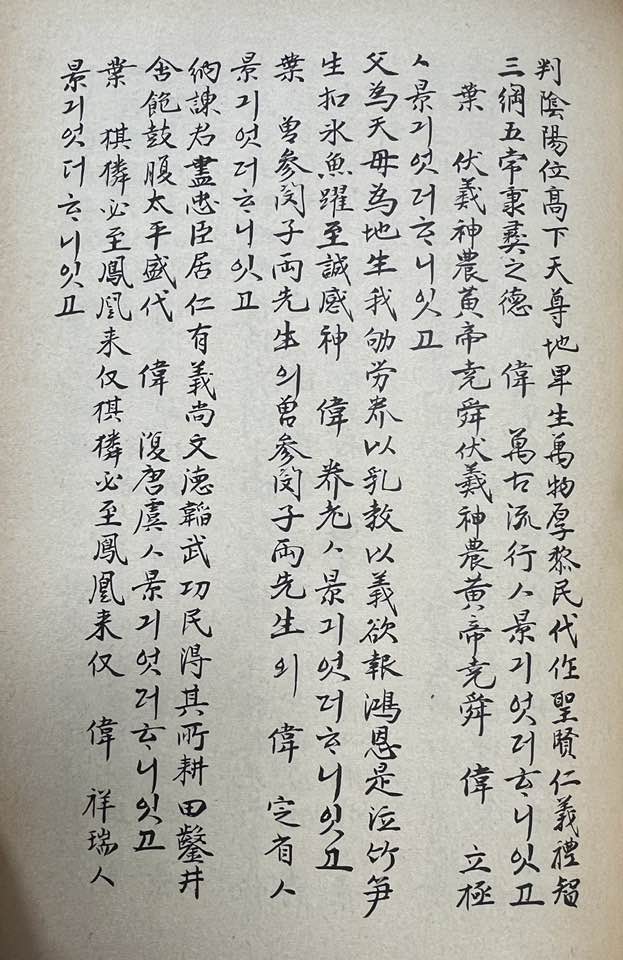 判陰陽位高下天尊地卑生萬物厚黎民代作聖賢仁義禮智
三綱五常秉彛之德 偉 萬古流行ㅅ景긔엇더ᄒᆞ니잇고
葉 伏羲神農黃帝堯舜伏羲神農黃帝堯舜 偉 立極
ㅅ景긔엇더ᄒᆞ니잇고
父為天母為地生我劬労养以乳教以義欲報鴻恩是泣竹笋
生扣氷魚躍至誠感神 偉 养老ㅅ景긔엇더ᄒᆞ니잇고
葉 曽參閔子両先生의曽參閔子両先生의 偉 定省ㅅ
景긔엇더ᄒᆞ니잇고
納諫君盡忠臣居仁有義尚文德韜武功民得其所耕田鑿井
含飽鼓腹太平盛代 偉 復唐虞ㅅ景긔엇더ᄒᆞ니잇고
葉 猉獜必至鳳凰来仪猉獜必至鳳凰来仪 偉 祥瑞ㅅ
景긔엇더ᄒᆞ니잇고